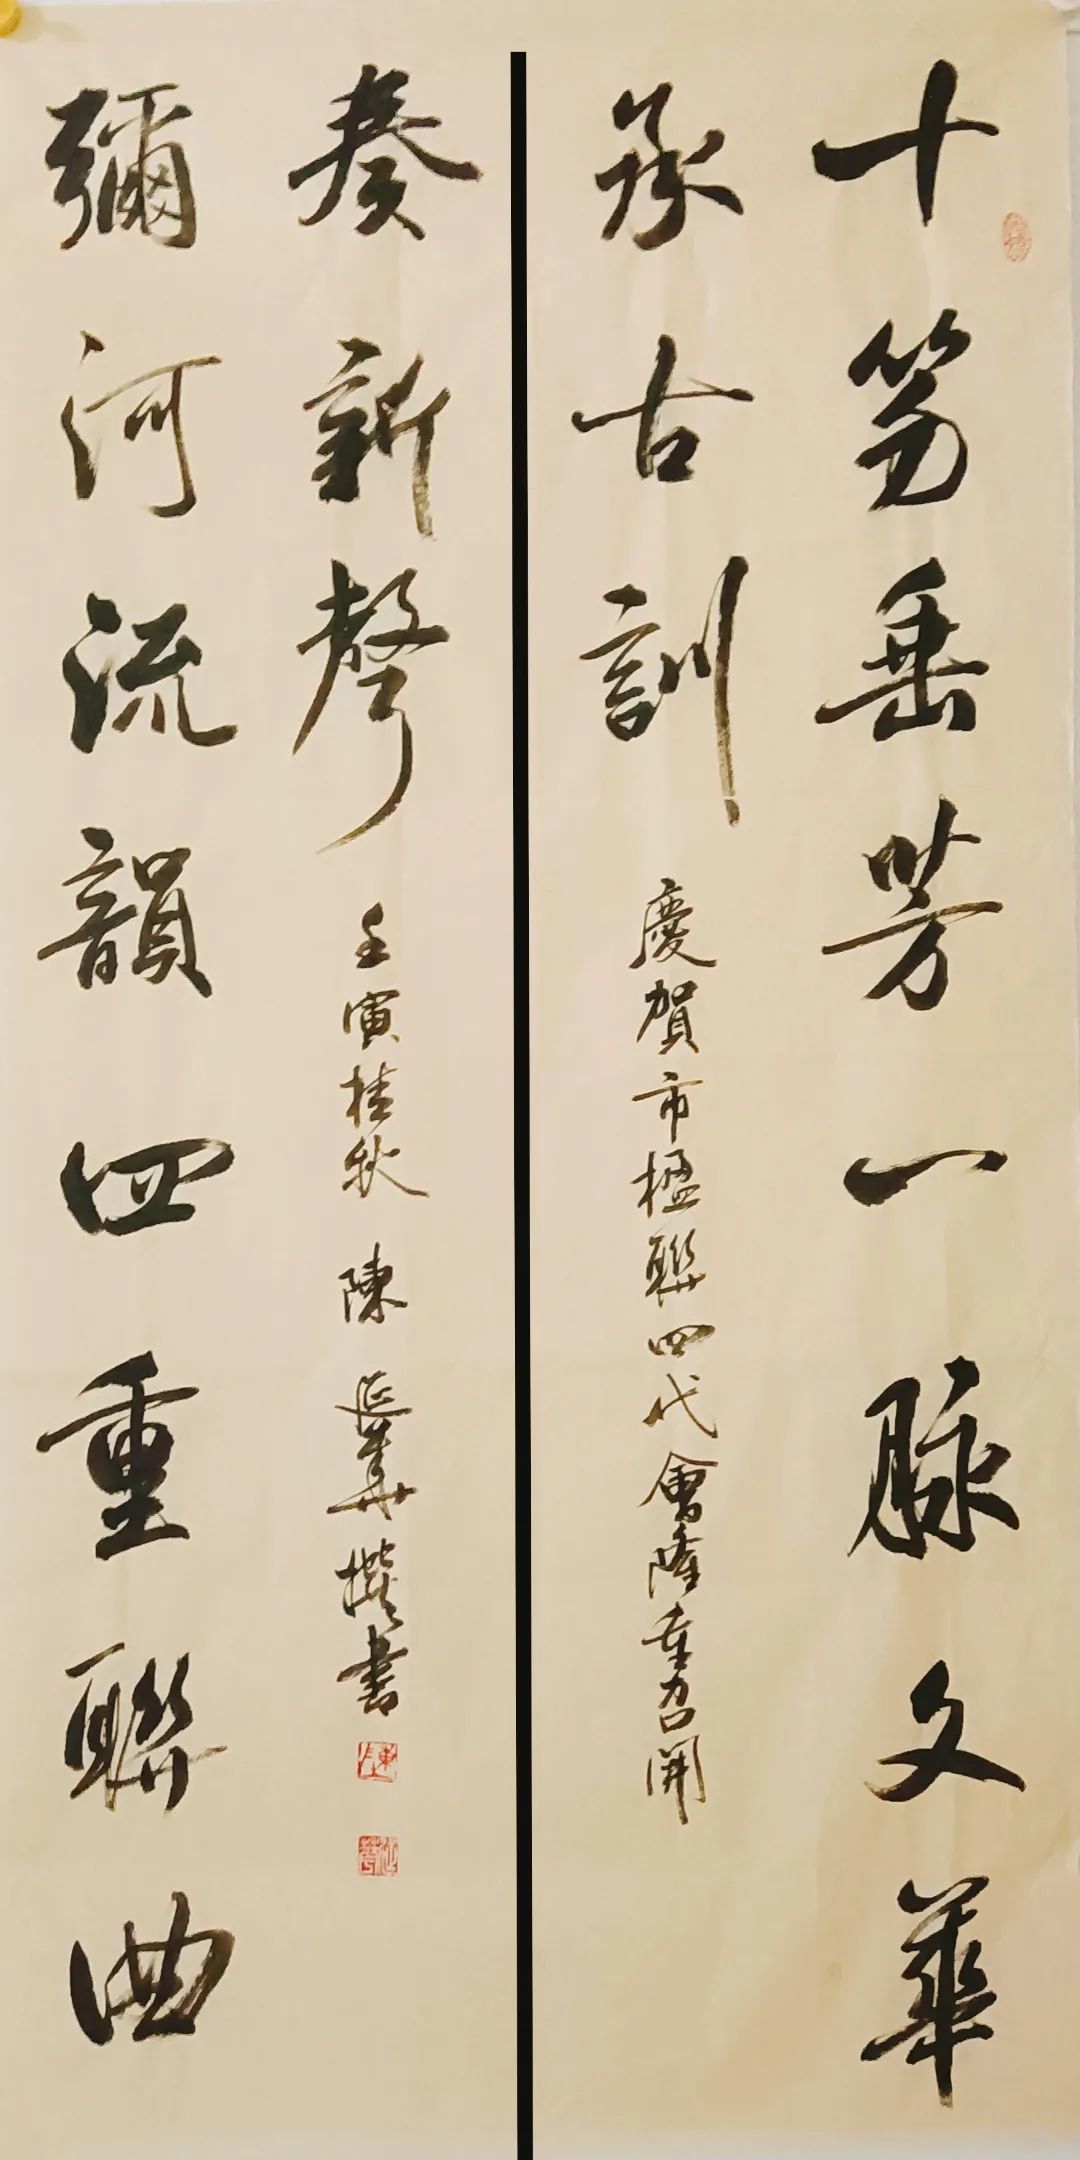 十笏垂芳一脉文華
承古訓
慶賀市楹聯四代會隆重召開
彌河流韻四重聯曲
奏新聲
壬寅桂秋 陳延華撰書